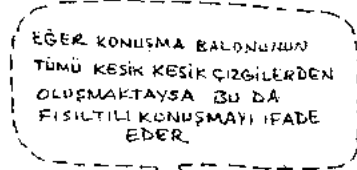 EĞER KONUŞMA BALONUNUN
TÜMÜ KESİK KESİK ÇİZGİLERDEN
OLUŞMAKTAYSA BU DA
FISILTILI KONUŞMAYI İFADE
EDER